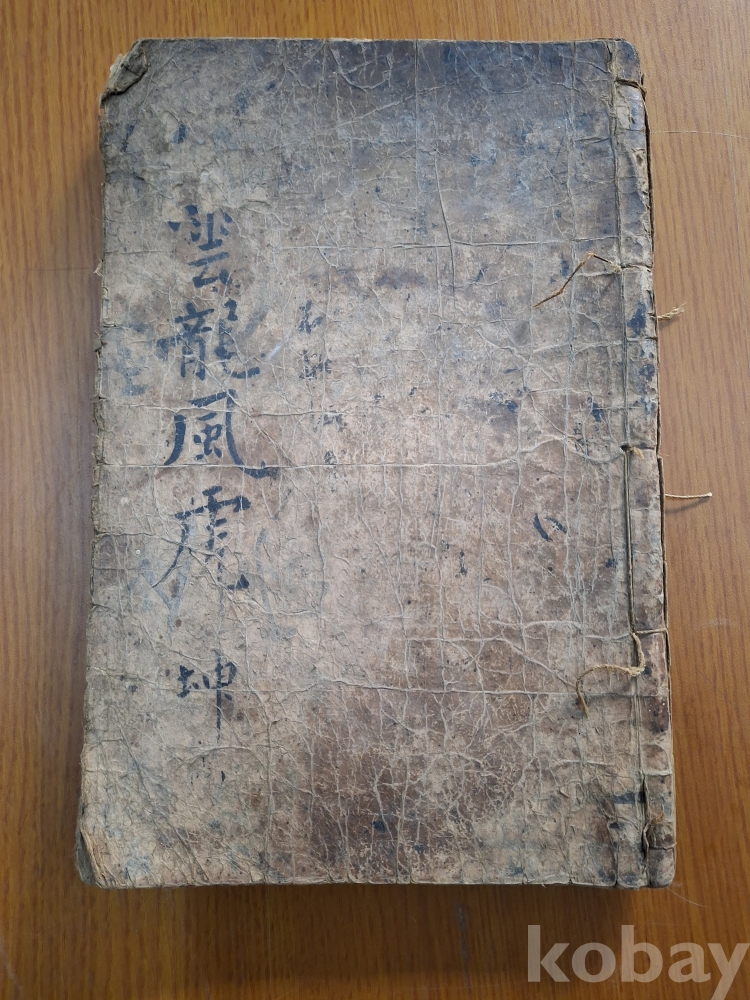 雲龍風虎 坤
kobay